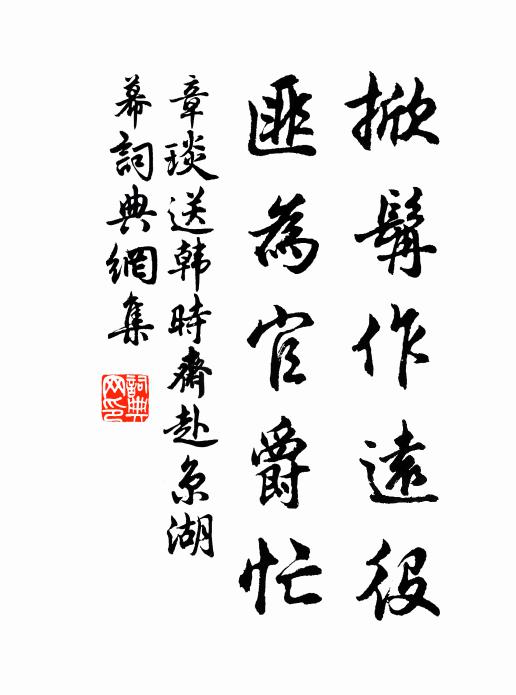 掀髯作遠役
匪為官爵忙
章琰送韩時齋赴京湖
幕詞典網集
詞典
网印